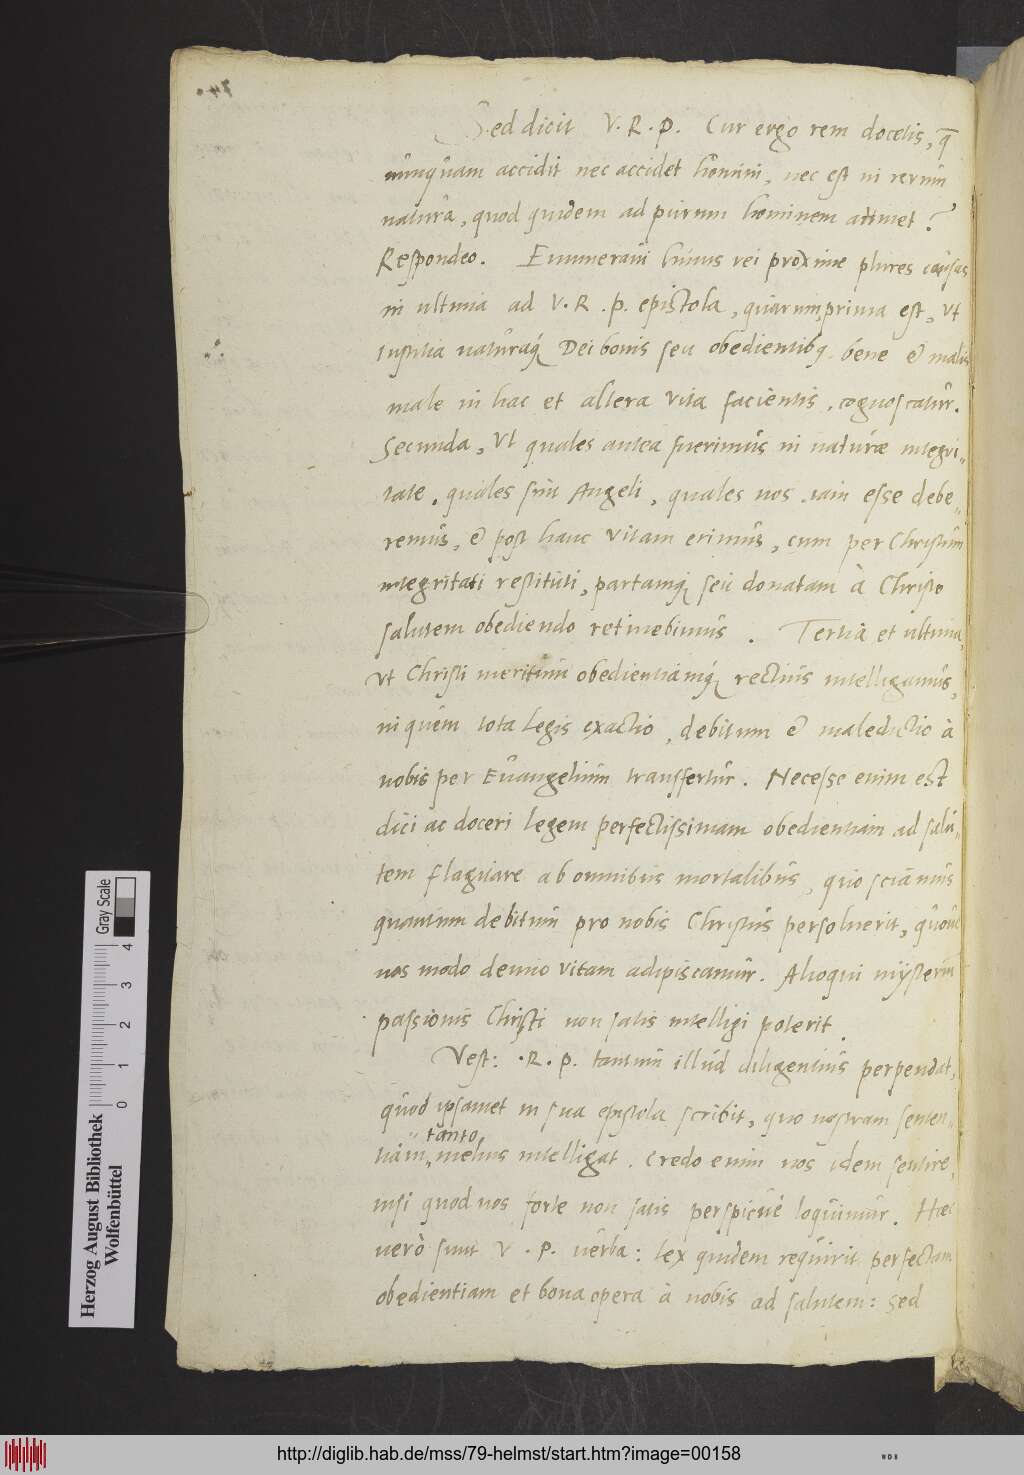 Sed dicit V. R. P. Cur ergo rem docetis, q̄
nunquam accidit nec accidet homini, nec est in rerum
natura, quod quidem ad purum hominem attinet?
Respondeo. Enumeraui huius rei proxime plures causas
in ultima ad V. R. P. epistola, quarum prima est, vt
iustitia naturaq́ꝫ Dei bonis seu obedientibꝫ bene & malis
male in hac et altera vita facientis, cognoscatur.
Secunda, Vt quales antea fuerimus in naturæ integri„
tate, quales sint Angeli, quales nos iam esse debe„
remus, & post hanc vitam erimus, cum per Christum
integritati restituti, partamq́ꝫ seu donatam à Christo
salutem obediendo retinebimus. Tertia et ultima,
vt Christi meritum obedientiamq́ꝫ rectius intelligamus,
in quem tota legis exactio, debitum & maledictio à
nobis per Euangelium transfertur. Necesse enim est
dici ac doceri legem perfectissimam obedientiam ad salu„
tem flagitare ab omnibus mortalibus, quo sciamus
quantum debitum pro nobis Christus persoluerit, quoue
nos modo demio vitam adipiscamur. Alioqui mysterium
passionis Christi non satis intelligi poterit.
Vest: R. P. tantum illud diligentius perpendat,
quod ipsamet in sua epistola scribit, quo nostram senten„
tanto
tiam, melius intelligat. Credo enim nos idem sentire,
nisi quod nos forte non satis perspicuè loquimur. Hæc
uerò sunt V. P. uerba: lex quidem requirit perfectam
obedientiam et bona opera à nobis ad salutem: sed
Herzog August Bibliothek
Wolfenbüttel
0 1 2 3 4
Gray Scale
http://diglib.hab.de/mss/79-helmst/start.htm?image=00158